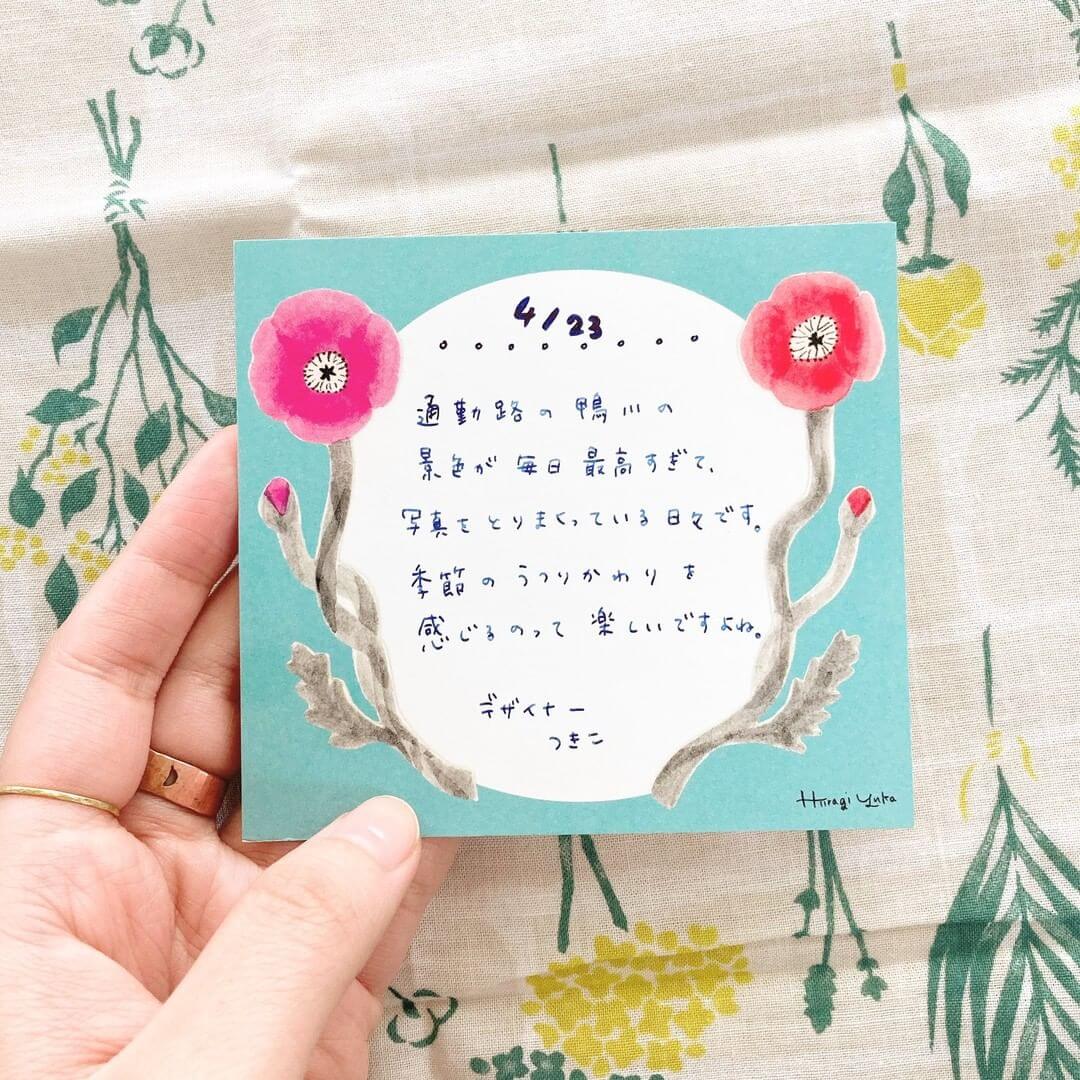 4/23
通勤路の鴨川の
景色が毎日最高すぎて、
写真をとりまくっている日々です。
季節のうつりかわりを
感じるのって楽しいですよね。
デザイナー
つきこ
Hiiragi Yuka